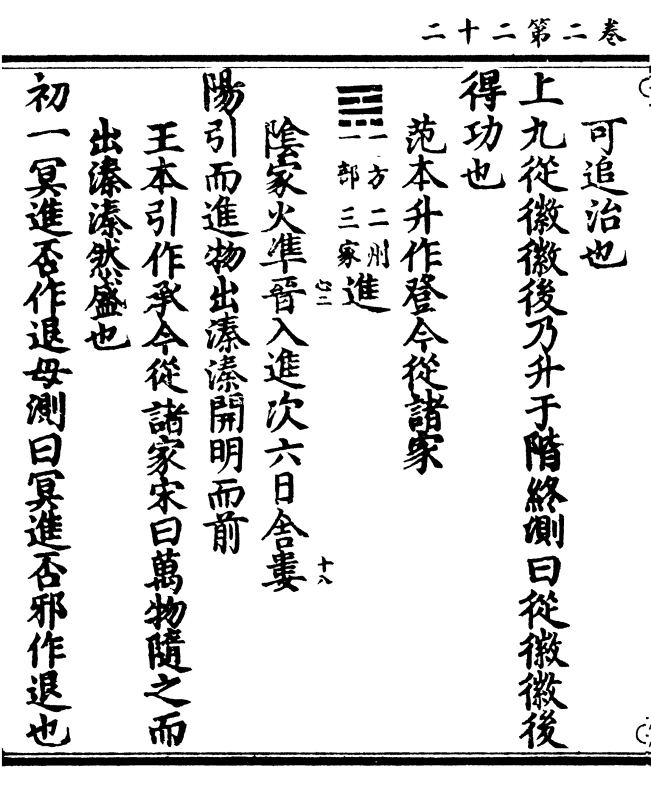 卷二第二十二
可追治也
上九從徽徽後乃升于階終測曰從徽徽後
得功也
范本升作登今從諸家
一方二州
一部三家
進
陰家火準晉入進次六日舍婁
心二
十八
陽引而進物出溱溱開明而前
王本引作承今從諸家宋曰萬物隨之而
出溱溱然盛也
初一冥進否作退母測曰冥進否邪作退也